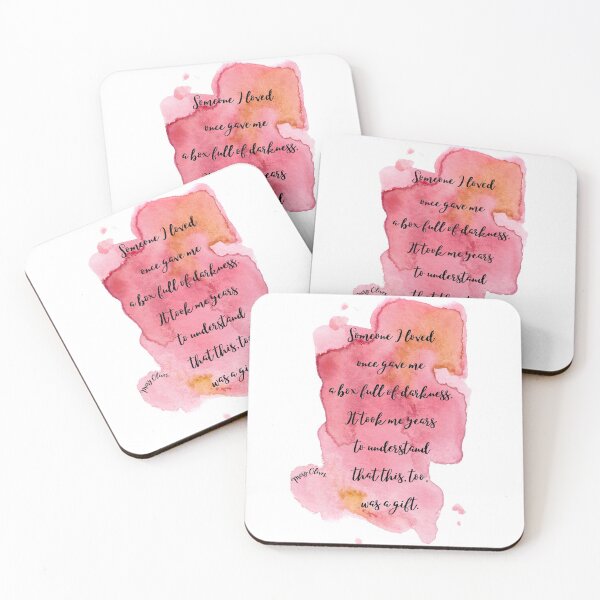 Someone I loved
once gave me
a box full of darkness.
years
Someone I loved
once gave me
a box full of darkness.
It took me years
to understand
Someone I loved
once gave me
a box full of darkness.
It took me years
to understand
that this, too,
was a gif
Mary Oliver
Someone I loved
once gave me
a box full of darkness.
It took me years
to understand
that this, too,
was a gift.
Mary Oliver